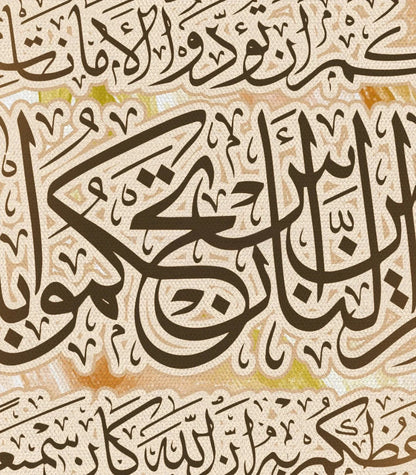 كم أن تؤدوا الأمانات
بين الناس أن تحكموا با
ظكم به إن الله كان سميع